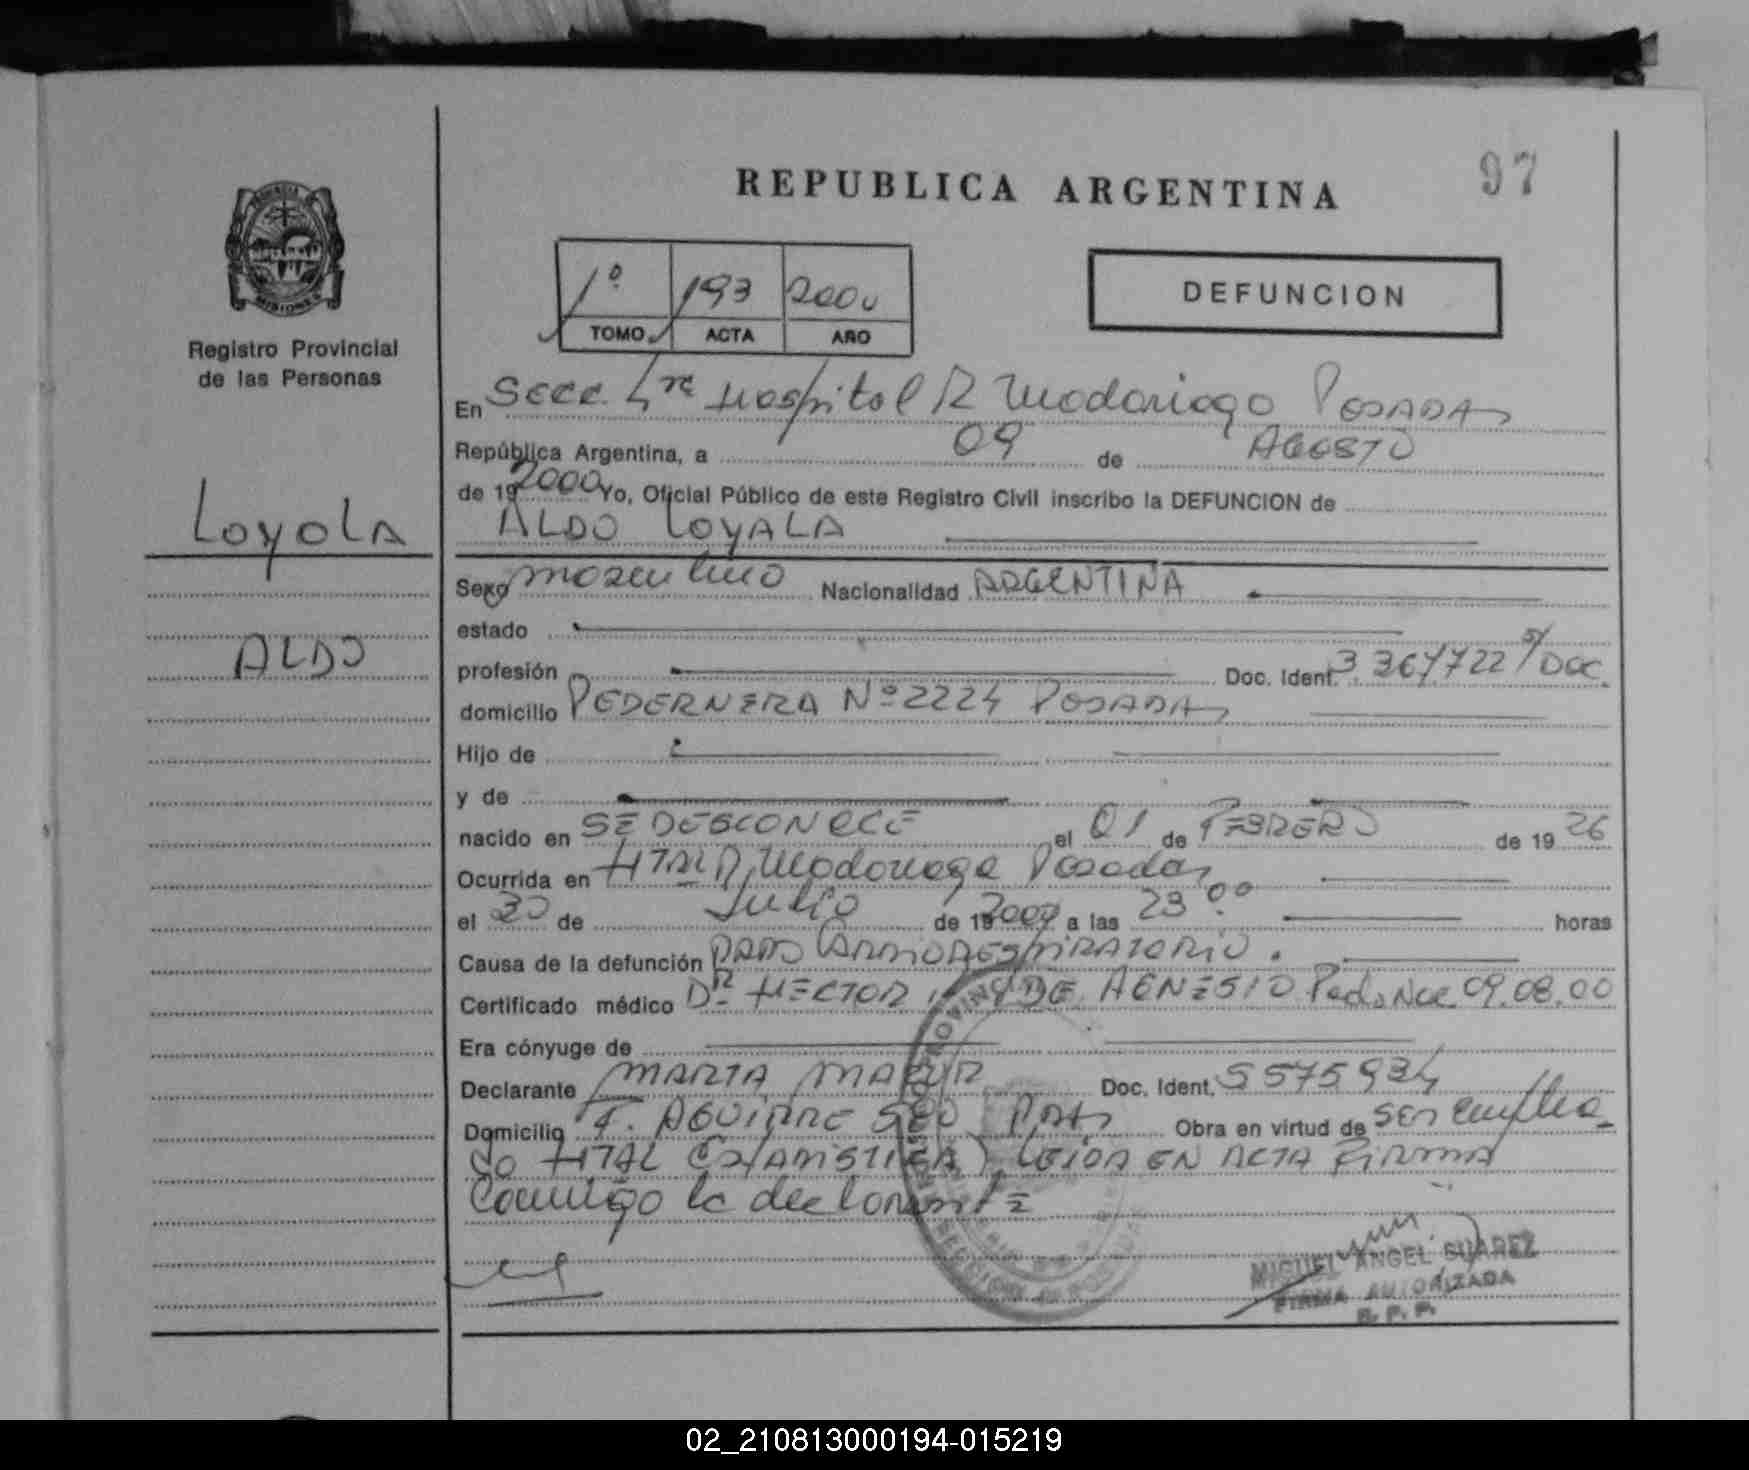 REPUBLICA ARGENTINA
97
1º 193 2000
TOMO ACTA AÑO
DEFUNCION
MISIONES
Registro Provincial
de las Personas
Loyola
ALDO
En Secc. 4ta Hospital R Madariaga POSADAS
República Argentina, a 09 de AGOSTO
de 19 2000 Yo, Oficial Público de este Registro Civil inscribo la DEFUNCION de
ALDO LOYALA
Sexo masculino Nacionalidad ARGENTINA
estado
profesión Doc. Ident. 3.367722 s/ Doc.
domicilio PEDERNERA Nº 2224 POSADAS
Hijo de
y de
nacido en SE DESCONOCE el 01 de FEBRERO de 19 26
Ocurrida en HTAL R. Madariaga Posadas
el 30 de Julio de 19 2000 a las 23:00 horas
Causa de la defunción PARO CARDIORESPIRATORIO.
Certificado médico DR HECTOR DE AGNESIO 09.08.00
Era cónyuge de
Declarante MARTA Doc. Ident. 5575934
Domicilio F. AGUIRRE PDAS Obra en virtud de ser emplea_
do HTAL (ESTADISTICA) LEIDA EN ACTA FIRMA
Conmigo la declarante
MIGUEL ANGEL SUAREZ
FIRMA AUTORIZADA
R. P. P.
02_210813000194-015219